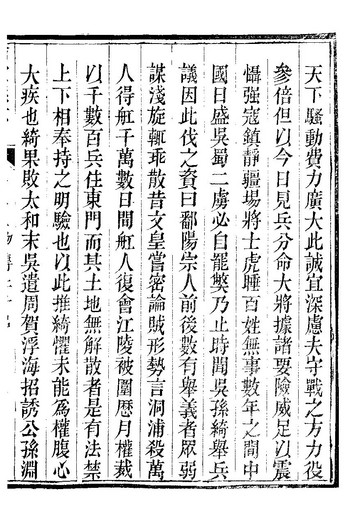 天下騷動費力廣大此誠宜深慮夫守戰之方力役
參倍但以今日見兵分命大將據諸要險威足以震
懾强寇鎭靜疆場將士虎睡百姓無事數年之間中
國日盛吳蜀二虜必自罷獘乃止時聞吳孫綺舉兵
議因此伐之資曰鄱陽宗人前後數有舉義者眾弱
謀淺旋輒乖散昔文皇嘗密論賊形勢言洞浦殺萬
人得舡千萬數日間舡人復會江陵被圍歷月權裁
以千數百兵住東門而其土地無解散者是有法禁
上下相奉持之明驗也以此推綺懼未能為權腹心
大疾也綺果敗太和末吳遣周賀浮海招誘公孫淵